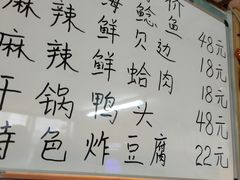 价
海鲶鱼 48元
麻辣鲜贝边 18元
麻辣鲜蛤肉 18元
干锅鸭头 48元
特色炸豆腐 22元